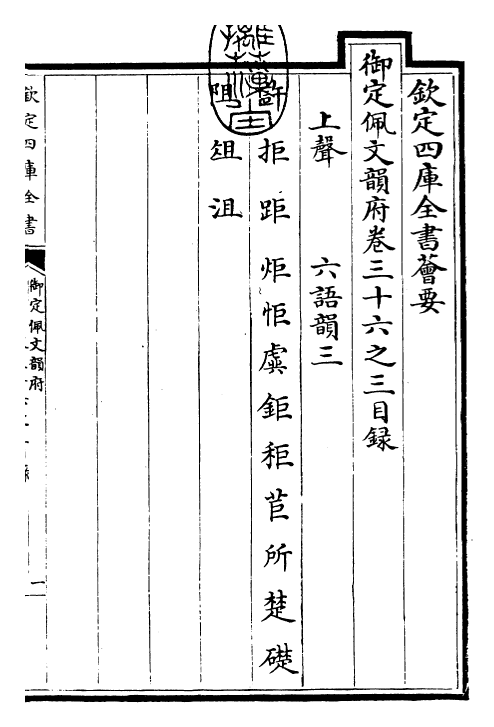 欽定四庫全書薈要
御定佩文韻府卷三十六之三目録
上聲 六語韻三
許拒距炬怇虡鉅秬苣所楚礎
阻俎沮
欽定四庫全書
御定佩文韻府
一